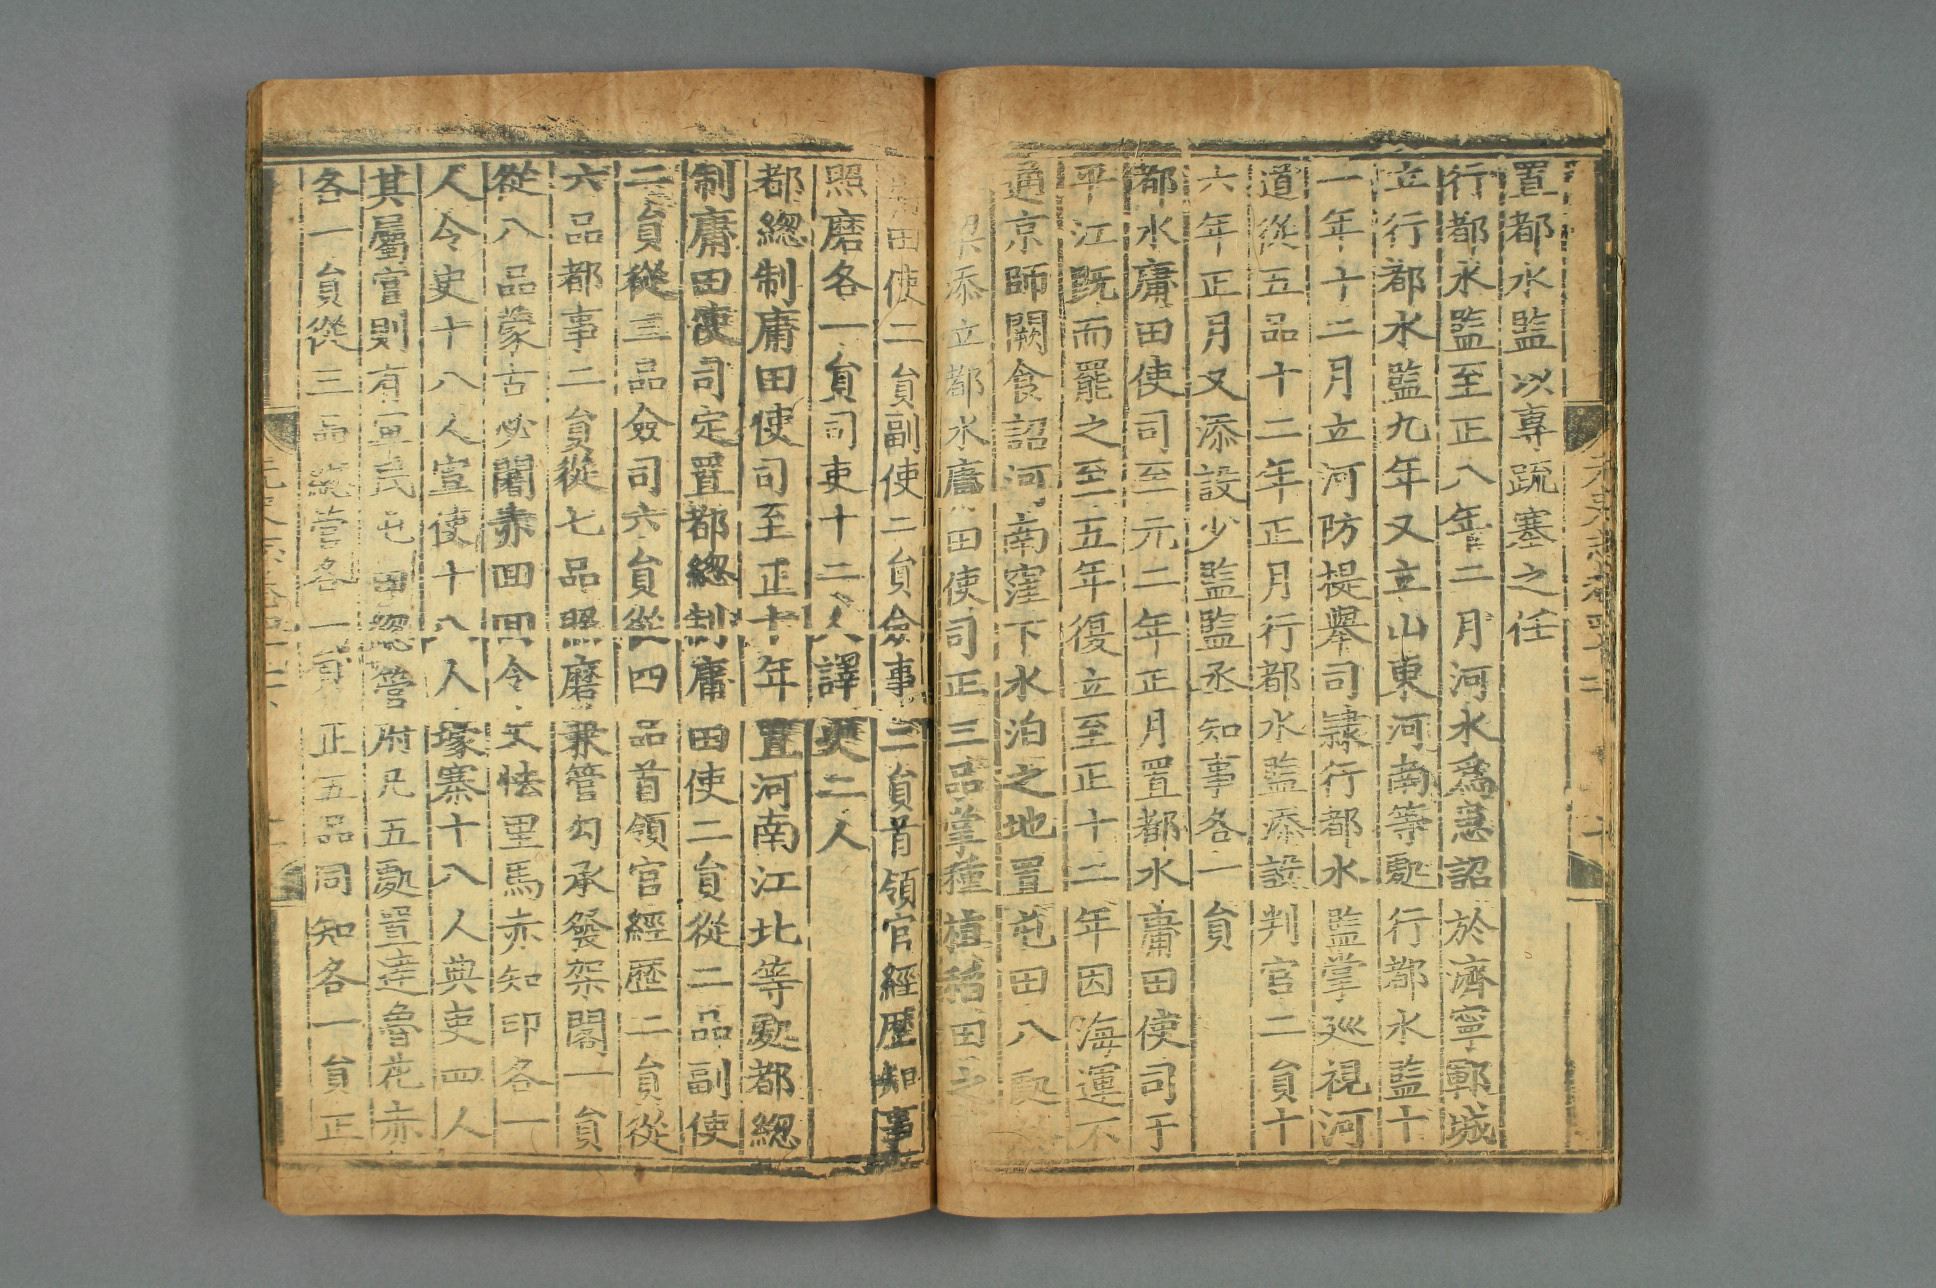 置都水監以專疏塞之任
行都水監至正八年二月河水爲患詔於濟寧鄆城
立行都水監九年又立山東河南等處行都水監十
一年十二月立河防提舉司隸行都水監掌巡視河
道從五品十二年正月行都水監添設判官二員十
六年正月又添設少監監丞知事各一員
都水庸田使司至元二年正月置都水庸田使司于
平江既而罷之至五年復立至正十二年因海運不
通京師闕食詔河南窪下水泊之地置屯田八處
添立都水庸田使司正三品掌種植稻田之
田使二員副使二員僉事二員首領官經歷知事
照磨各一員司吏十二人譯史二人
都總制庸田使司至正十年置河南江北等處都總
制庸田使司定置都總制庸田使二員從二品副使
二員從三品僉司六員從四品首領官經歷二員從
六品都事二員從七品照磨兼管勾承發架閣一員
從八品蒙古必闍赤回回令史怯里馬赤知印各一
人令史十八人宣使十八人壕寨十八人典吏四人
其屬官則有軍民屯田總管府凡五處置達魯花赤
各一員從三品總管各一員正五品同知各一員正